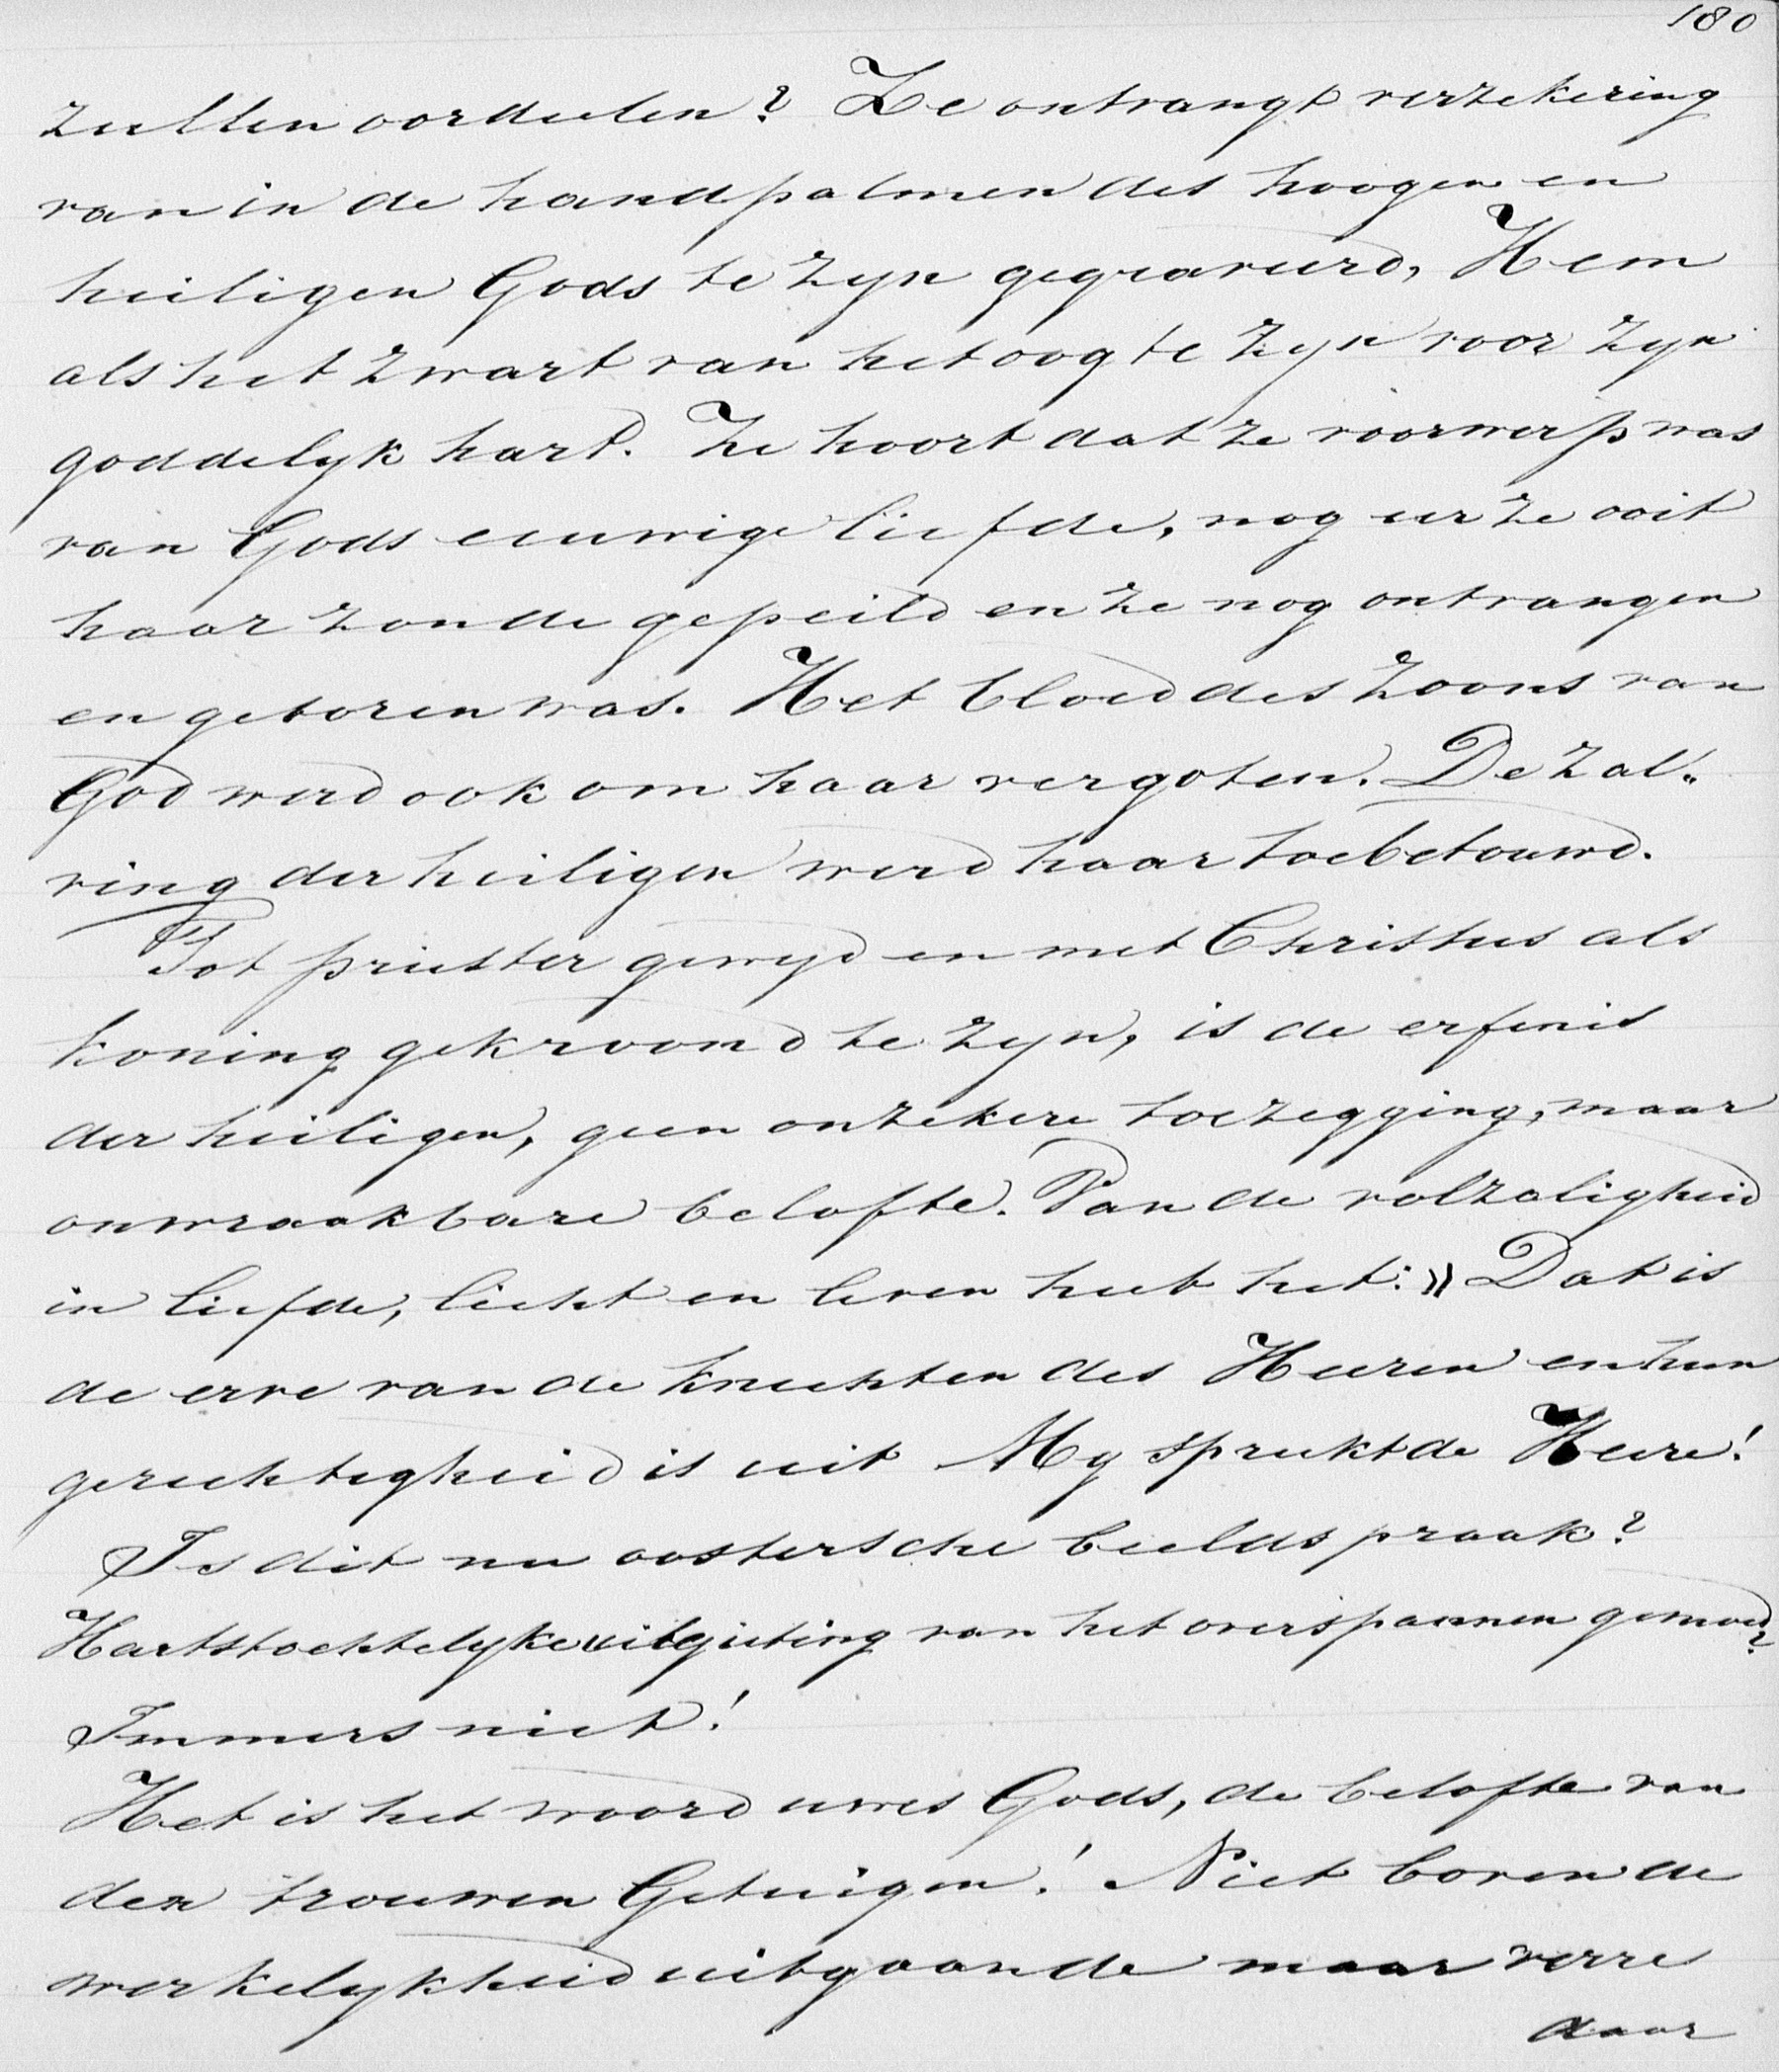 180
zullen oordeelen? Ze ontvangt verzekering
van in de handpalmen des hoogen en
heiligen Gods te zyn gegraveerd, Hem
als het zwart van het oog te zyn voor zyn
goddelyk hart. Ze hoort dat ze voorwerp was
van Gods eeuwige liefde, nog eer ze ooit
haar zonde gepeild en ze nog ontvangen
en geboren was. Het bloed des Zoons van
God werd ook om haar vergoten. De zal„
ving der heiligen werd haar toebetouwd.
Tot priester gewyd en met Christus als
koning gekroond te zyn, is de erfenis
der heiligen, geen onzekere toezegging, maar
onwraakbare belofte. Van de volzaligheid
in liefde, licht en leven heet het: » Dat is
de erve van de knechten des Heeren en hun
gerechtigheid is uit My spreekt de Heere!
Is dit nu oostersche beeldspraak?
Hartstochtelyke uitgieting van het overspannen gemoed?
Immers niet!
Het is het woord uwes Gods, de belofte van
den trouwen Getuigen! Niet boven de
werkelykheid uitgaande maar verre
daar